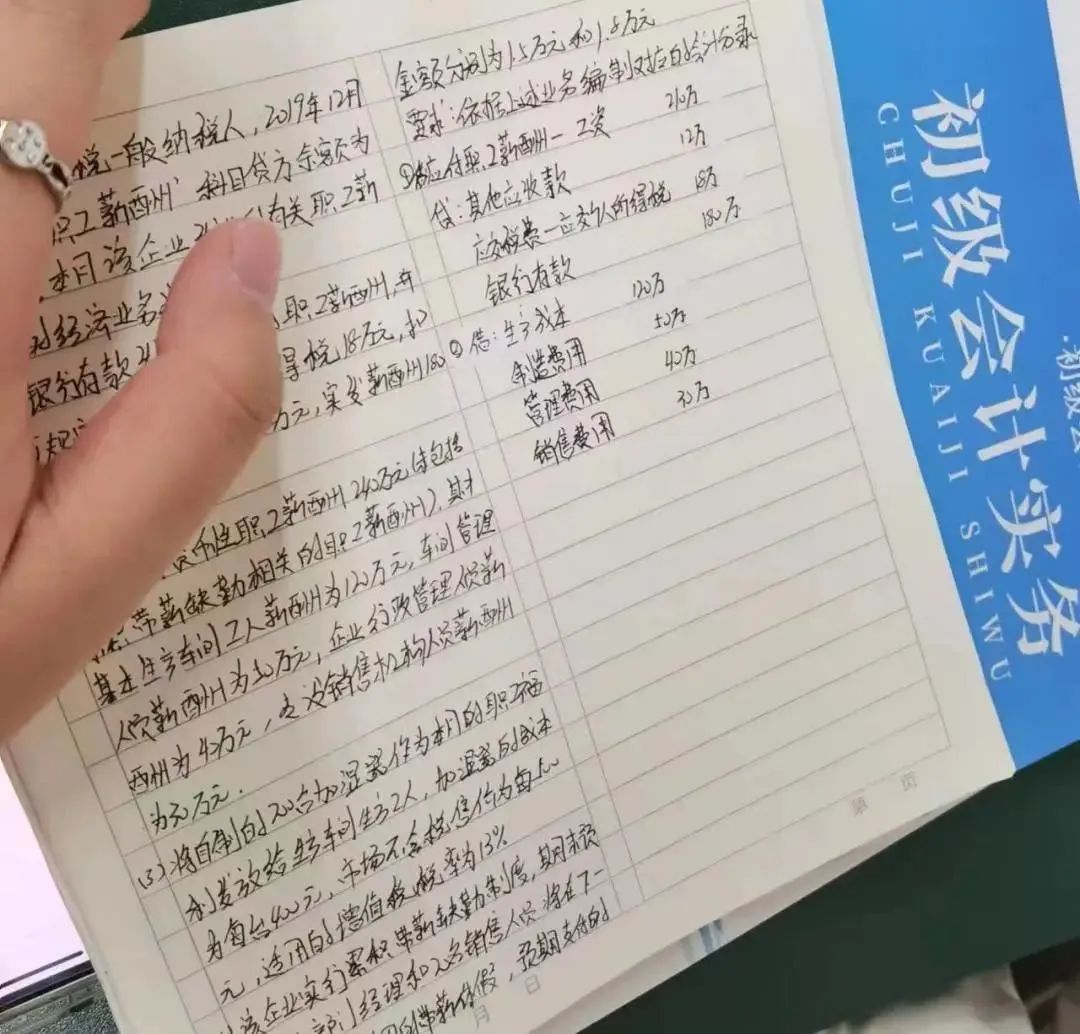 税一般纳税人，2019年12月
职工薪酬"科目贷方余额为
本月该企业 有关职工薪
经济业务
职工薪酬，
银行存款 得税18万元，扣
万元，实发薪酬180
币性职工薪酬240万元(未包括
带薪缺勤相关的职工薪酬)，其中
基本生产车间工人薪酬为120万元，车间管理
人员薪酬为50万元，企业行政管理人员薪
酬为40万元，专设销售机构人员薪酬
为30万元.
(3)、将自制的200台加湿器作为本月的职工福
利发放给生产车间生产工人，加湿器的成本
为每台400元，市场不含税售价为每台
元，适用的增值税税率为13%
该企业实行累积带薪缺勤制度，期末预
部门经理和 名销售人员将在下一
的带薪休假，预期支付的
金额分别为1.5万元和1.8万元
要求：依据上述业务编制对应的会计分录
①借应付职工薪酬—工资 210万
贷：其他应收款 12万
应交税费—应交个人所得税 18万
银行存款 180万
②借：生产成本 120万
制造费用 50万
管理费用 40万
销售费用 30万
第 页
月 日
初级会计实务
CHUJI KUAIJI SHIWU
初级会